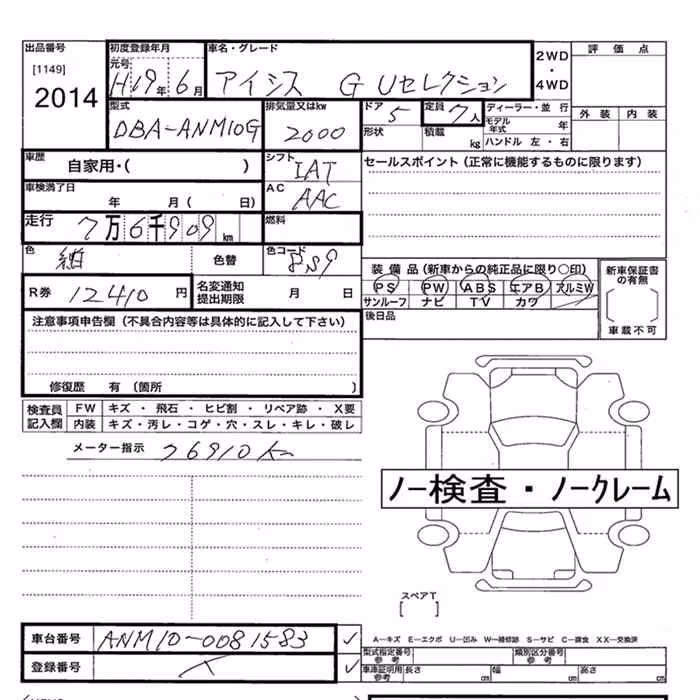 出品番号 [1149] 2014
初度登録年月 元号 H19年 6月
車名・グレード アイシス G Uセレクション
2WD・4WD
評価点
外装 内装
型式 DBA-ANM10G
排気量又はkw 2000
ドア 5
形状
定員 7人
積載 kg
ディーラー・並行
モデル年式 年
ハンドル 左・右
車歴 自家用・( )
シフト IAT
セールスポイント(正常に機能するものに限ります)
車検満了日 年 月( 日)
AC AAC
走行 7万6千909km
燃料
色 紺 色替
色コード 8S9
装備品(新車からの純正品に限り○印)
新車保証書の有無
PS PW ABS エアB アルミW
サンルーフ ナビ TV カワ
車載不可
R券 12410円
名変通知提出期限 月 日
後日品
注意事項申告欄(不具合内容等は具体的に記入して下さい)
修復歴 有(箇所 )
検査員記入欄
FW キズ・飛石・ヒビ割・リペア跡・X要
内装 キズ・汚レ・コゲ・穴・スレ・キレ・破レ
メーター指示 76910K
ノー検査・ノークレーム
スペアT
[ ]
車台番号 ANM10-0081583 ✓
A―キズ E―エクボ U―凹み W―補修跡 S―サビ C―腐食 XX―交換済
型式指定番号 参考
類別区分番号 参考
登録番号 ✓
車庫証明用参考 長さ cm 幅 cm 高さ cm